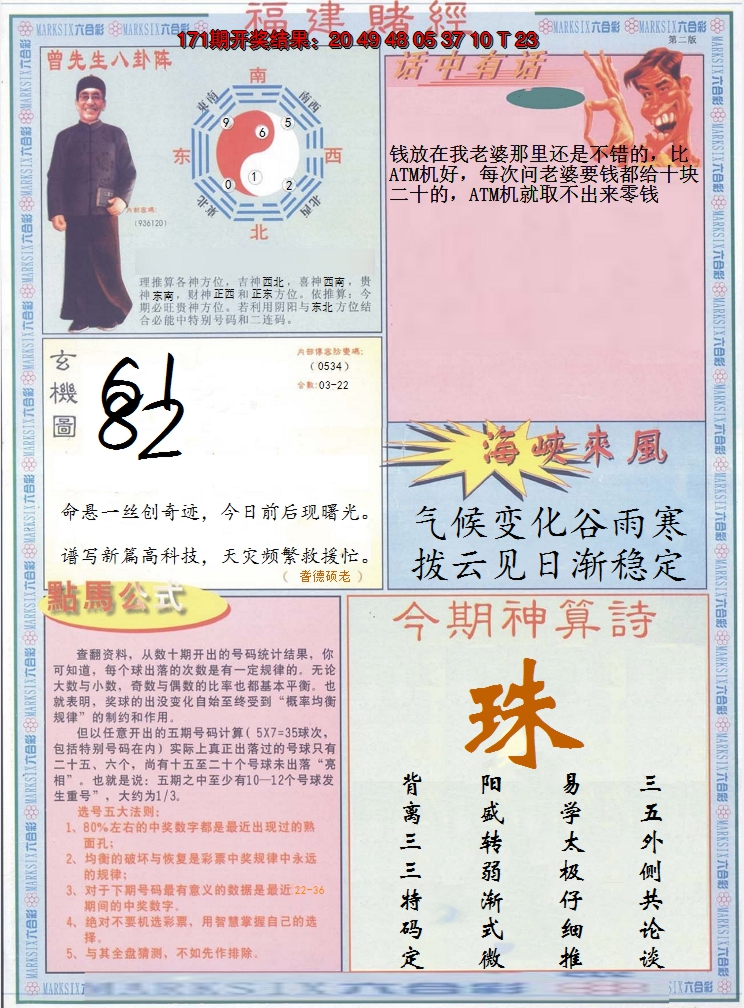 福建賭經
171期开奖结果：20 49 48 05 37 10 T 23
第二版
MARKSIX六合彩
曾先生八卦阵
南
东南
南西
9
5
6
东
西
1
0
2
東北
北西
北
内部密碼：
（936120）
理推算各神方位，吉神西北，喜神西南，贵
神东南，财神正西和正东方位。依推算：今
期必旺贵神方位。若利用阴阳与东北方位结
合必能中特别号码和二连码。
话中有话
钱放在我老婆那里还是不错的，比
ATM机好，每次问老婆要钱都给十块
二十的，ATM机就取不出来零钱
玄機圖
内部傳密防雙碼：
（0534）
合數：03-22
61
82
命悬一丝创奇迹，今日前后现曙光。
谱写新篇高科技，天灾频繁救援忙。
（ 耆德硕老 ）
海峽來風
气候变化谷雨寒
拨云见日渐稳定
點馬公式
查翻资料，从数十期开出的号码统计结果，你
可知道，每个球出落的次数是有一定规律的。无论
大数与小数，奇数与偶数的比率也都基本平衡。也
就表明，奖球的出没变化自始至终受到“概率均衡
规律”的制约和作用。
但以任意开出的五期号码计算（5X7=35球次，
包括特别号码在内）实际上真正出落过的号球只有
二十五、六个，尚有十五至二十个号球未出落“亮
相”。也就是说：五期之中至少有10—12个号球发
生重号”，大约为1/3。
选号五大法则：
1、80%左右的中奖数字都是最近出现过的熟
面孔；
2、均衡的破坏与恢复是彩票中奖规律中永远
的规律；
3、对于下期号码最有意义的数据是最近22-36
期间的中奖数字。
4、绝对不要机选彩票，用智慧掌握自己的选
择。
5、与其全盘猜测，不如先作排除。
今期神算詩
珠
三五外侧共论谈
易学太极仔细推
阳盛转弱渐式微
背离三三特码定